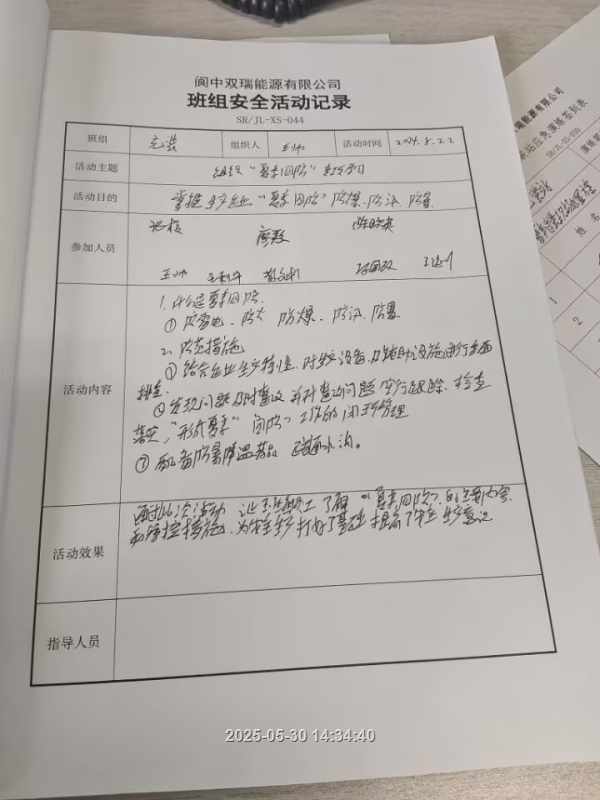 阆中双瑞能源有限公司
班组安全活动记录
SR/JL-XS-044
班组 充装 组织人 王帅 活动时间 2024.5.22
活动主题 组织"夏季四防"教育学习
活动目的 掌握生产企业"夏季四防"防爆、防汛、防暑
参加人员
廖毅
王帅
活动内容
1.什么是夏季四防
①防雷电、防火 防爆、防汛、防暑
2.防范措施
①结合企业生产特性,对生产设备、及辅助设施进行全面
排查
②发现问题及时整改并对整改问题实行跟踪、检查
落实,形成夏季"四防"工作的闭环管理
③配备防暑降温药品 疏通水沟。
活动效果
通过此次活动 让全体职工了解"夏季四防"的主要内容
和管控措施,为安全生产打好了基础 提高了安全生产意识
指导人员
瑞能源有限公司
SR/JL-XS-020
姓名
1
2
2025-05-30 14:34:40